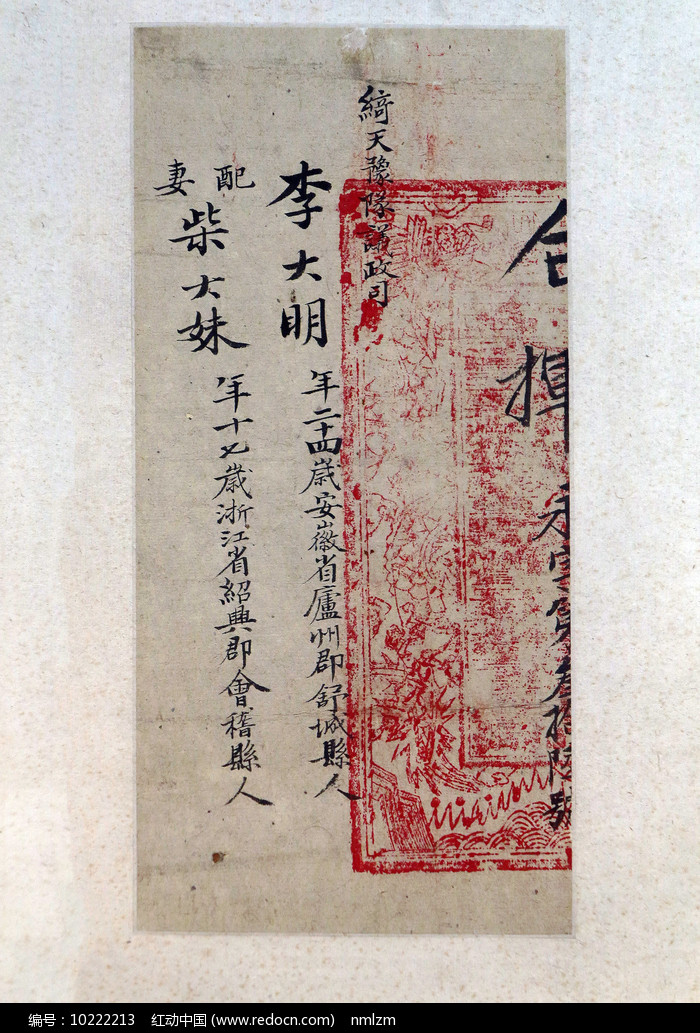 合揮
叁拾陸號
綺天豫隊議政司
李大明 年二十四歲安徽省廬州郡舒城縣人
配妻 柴大妹 年十七歲浙江省紹興郡會稽縣人
编号：10222213 红动中国 (www.redocn.com) nmlzm